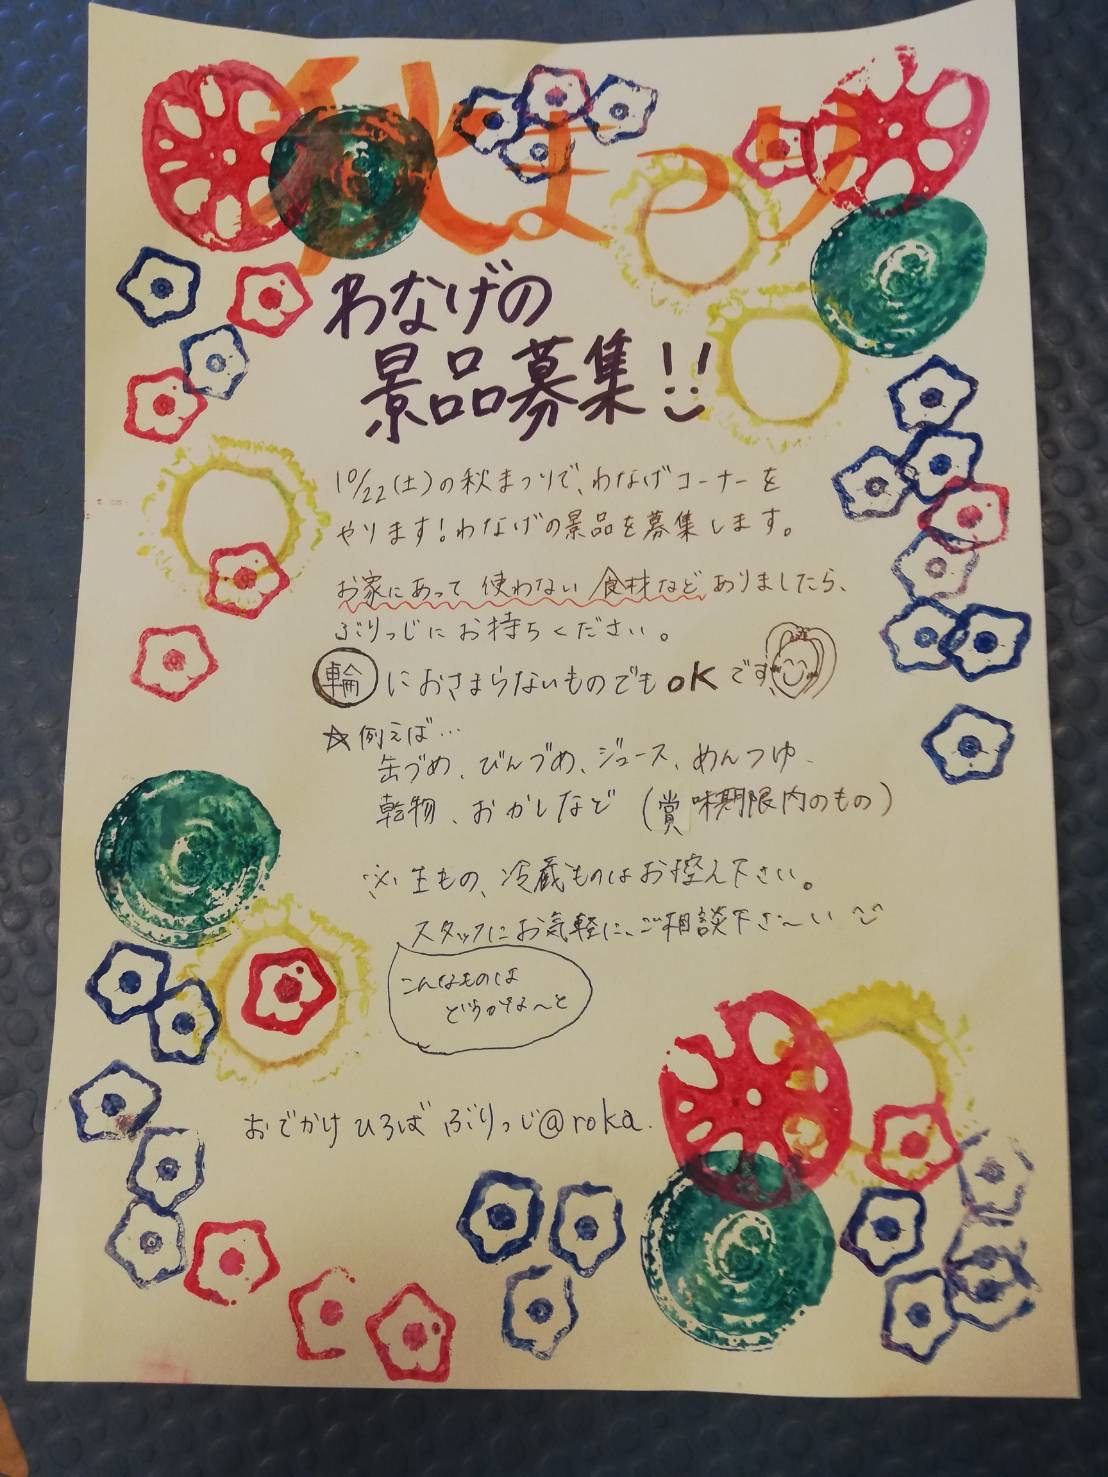 秋まつり
わなげの
景品募集!!
10/22(土)の秋まつりで、わなげコーナーを
やります!わなげの景品を募集します。
お家にあって使わない食材などありましたら、
ぶりっじにお持ちください。
輪におさまらないものでもOKです
☆例えば…
缶づめ、びんづめ、ジュース、めんつゆ、
乾物、おかしなど(賞味期限内のもの)
※生もの、冷蔵ものはお控え下さい。
スタッフにお気軽に、ご相談下さ〜い
こんなものは
どうかな〜と
おでかけひろば ぶりっじ@roka.